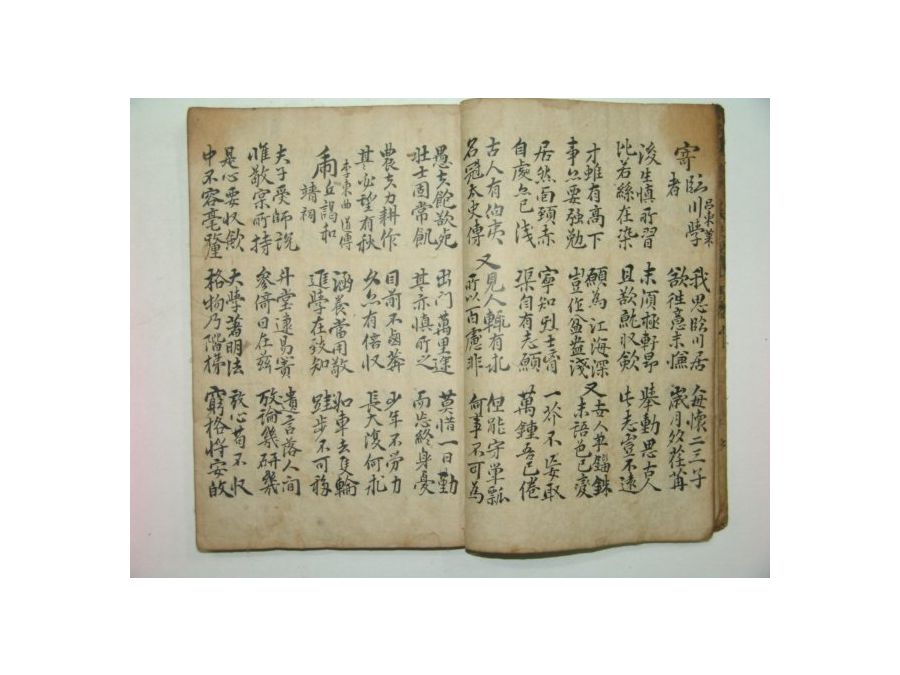 寄臨川學 呂東萊 我思臨川居 每懷二三子
者 欲徃意未慊 歲月久荏苒
後生慎所習 未須極軒昂 擧動思古人
比若絲在染 且欲就収斂 此志豈不遠
才雖有高下 願爲江海深 又 妄人無錙銖
事亦要強勉 豈作盆盎淺 未語色已變
居然面頸赤 寧知烈士胷 一芥不妄取
自處亦已淺 渠自有志願 萬鍾吾已倦
古人有伯夷 又 見人輒有求 但能守單瓢
名冠太史傳 所以百慮非 何事不可為
愚夫飽欲死 出門萬里途 莫惜一日勤
壯士固常飢 其亦慎所之 而忘終身憂
農夫力耕作 目前不鹵莽 少年不勞力
其必望有秋 久亦有倍収 長大復何求
李東曲道傳
丘謁和 涵養當用敬 如車去隻輪
靖祠 進學在致知 跬步不可移
夫子受師說 升堂遠易簀 遺言落人間
惟敬宗所持 參倚日在玆 攷論幾研幾
是心要収斂 大學著明法 放心苟不収
中不容毫釐 格物乃階梯 窮格將安